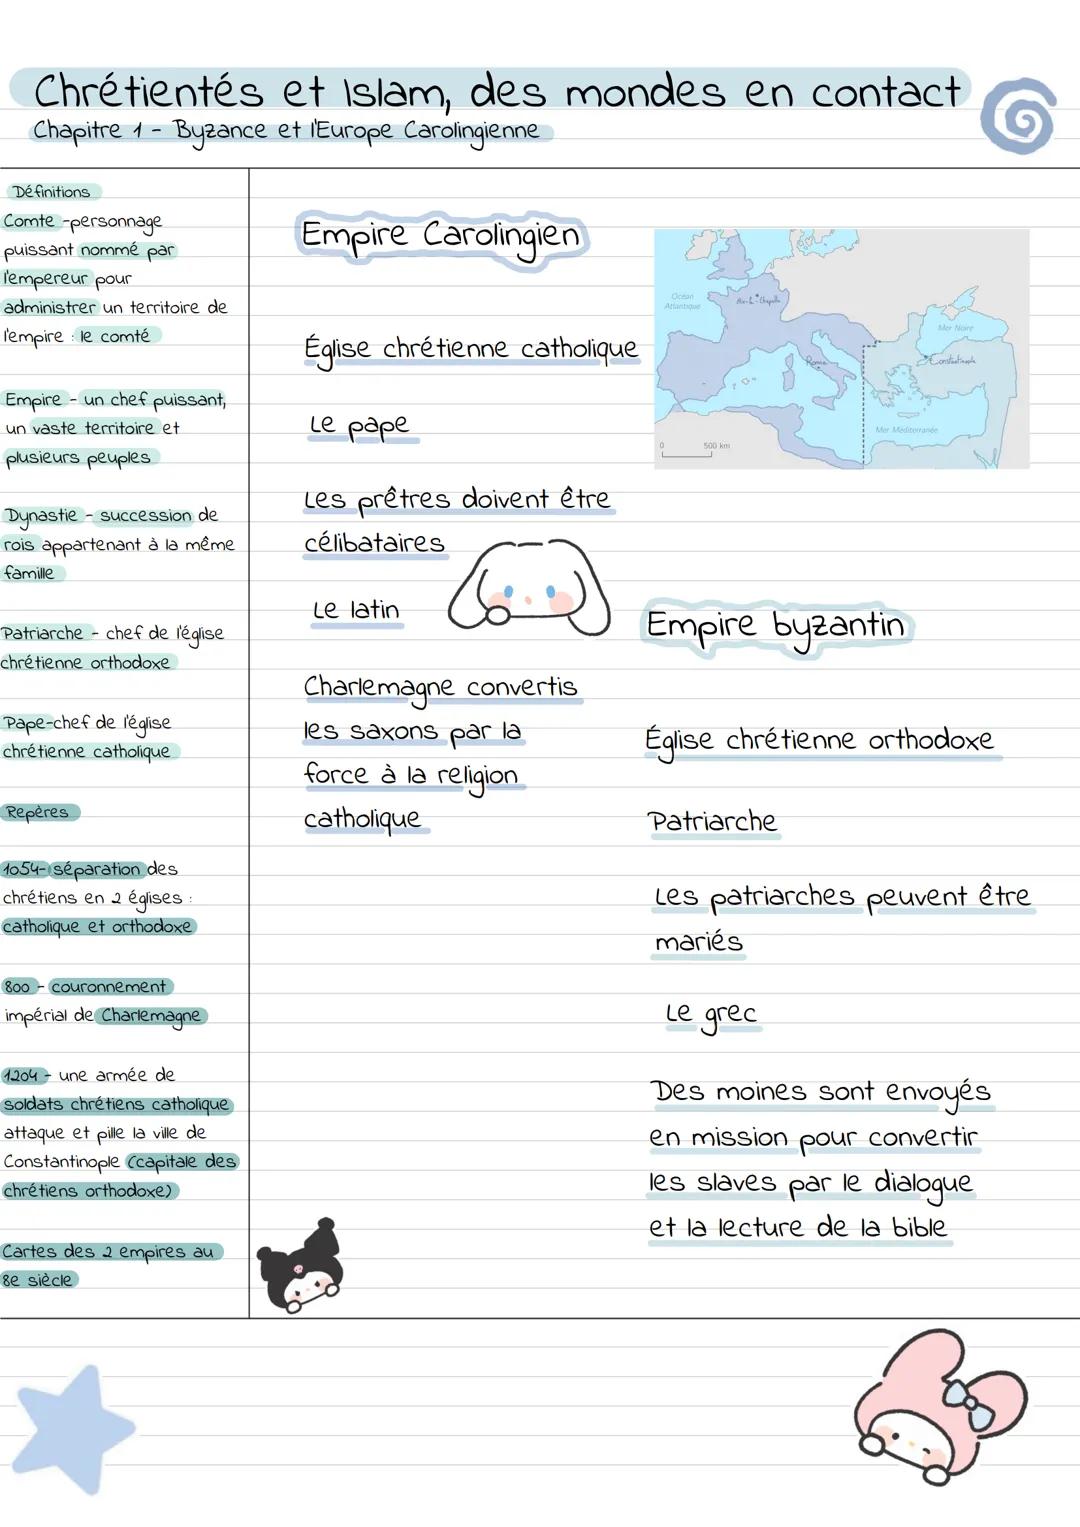 Chrétientés et Islam, des mondes en contact
Chapitre 1 - Byzance et l'Europe Carolingienne
Définitions
Comte -personnage
puissant nommé par
l'empereur pour
administrer un territoire de
l'empire : le comté
Empire - un chef puissant,
un vaste territoire et
plusieurs peuples
Dynastie - succession de
rois appartenant à la même
famille
Patriarche - chef de l'église
chrétienne orthodoxe
Pape-chef de l'église
chrétienne catholique
Repères
1054- séparation des
chrétiens en 2 églises :
catholique et orthodoxe
800 - couronnement
impérial de Charlemagne
1204 - une armée de
soldats chrétiens catholique
attaque et pille la ville de
Constantinople (capitale des
chrétiens orthodoxe)
Cartes des 2 empires au
8e siècle
Empire Carolingien
Église chrétienne catholique
Le pape
Les prêtres doivent être
célibataires
Le latin
Charlemagne convertis
les saxons par la
force à la religion
catholique
Océan
Atlantique
Aix-la-Chapelle
Rome
Mer Noire
Constantinople
Mer Méditerranée
0 500 km
Empire byzantin
Église chrétienne orthodoxe
Patriarche
Les patriarches peuvent être
mariés
Le grec
Des moines sont envoyés
en mission pour convertir
les slaves par le dialogue
et la lecture de la bible